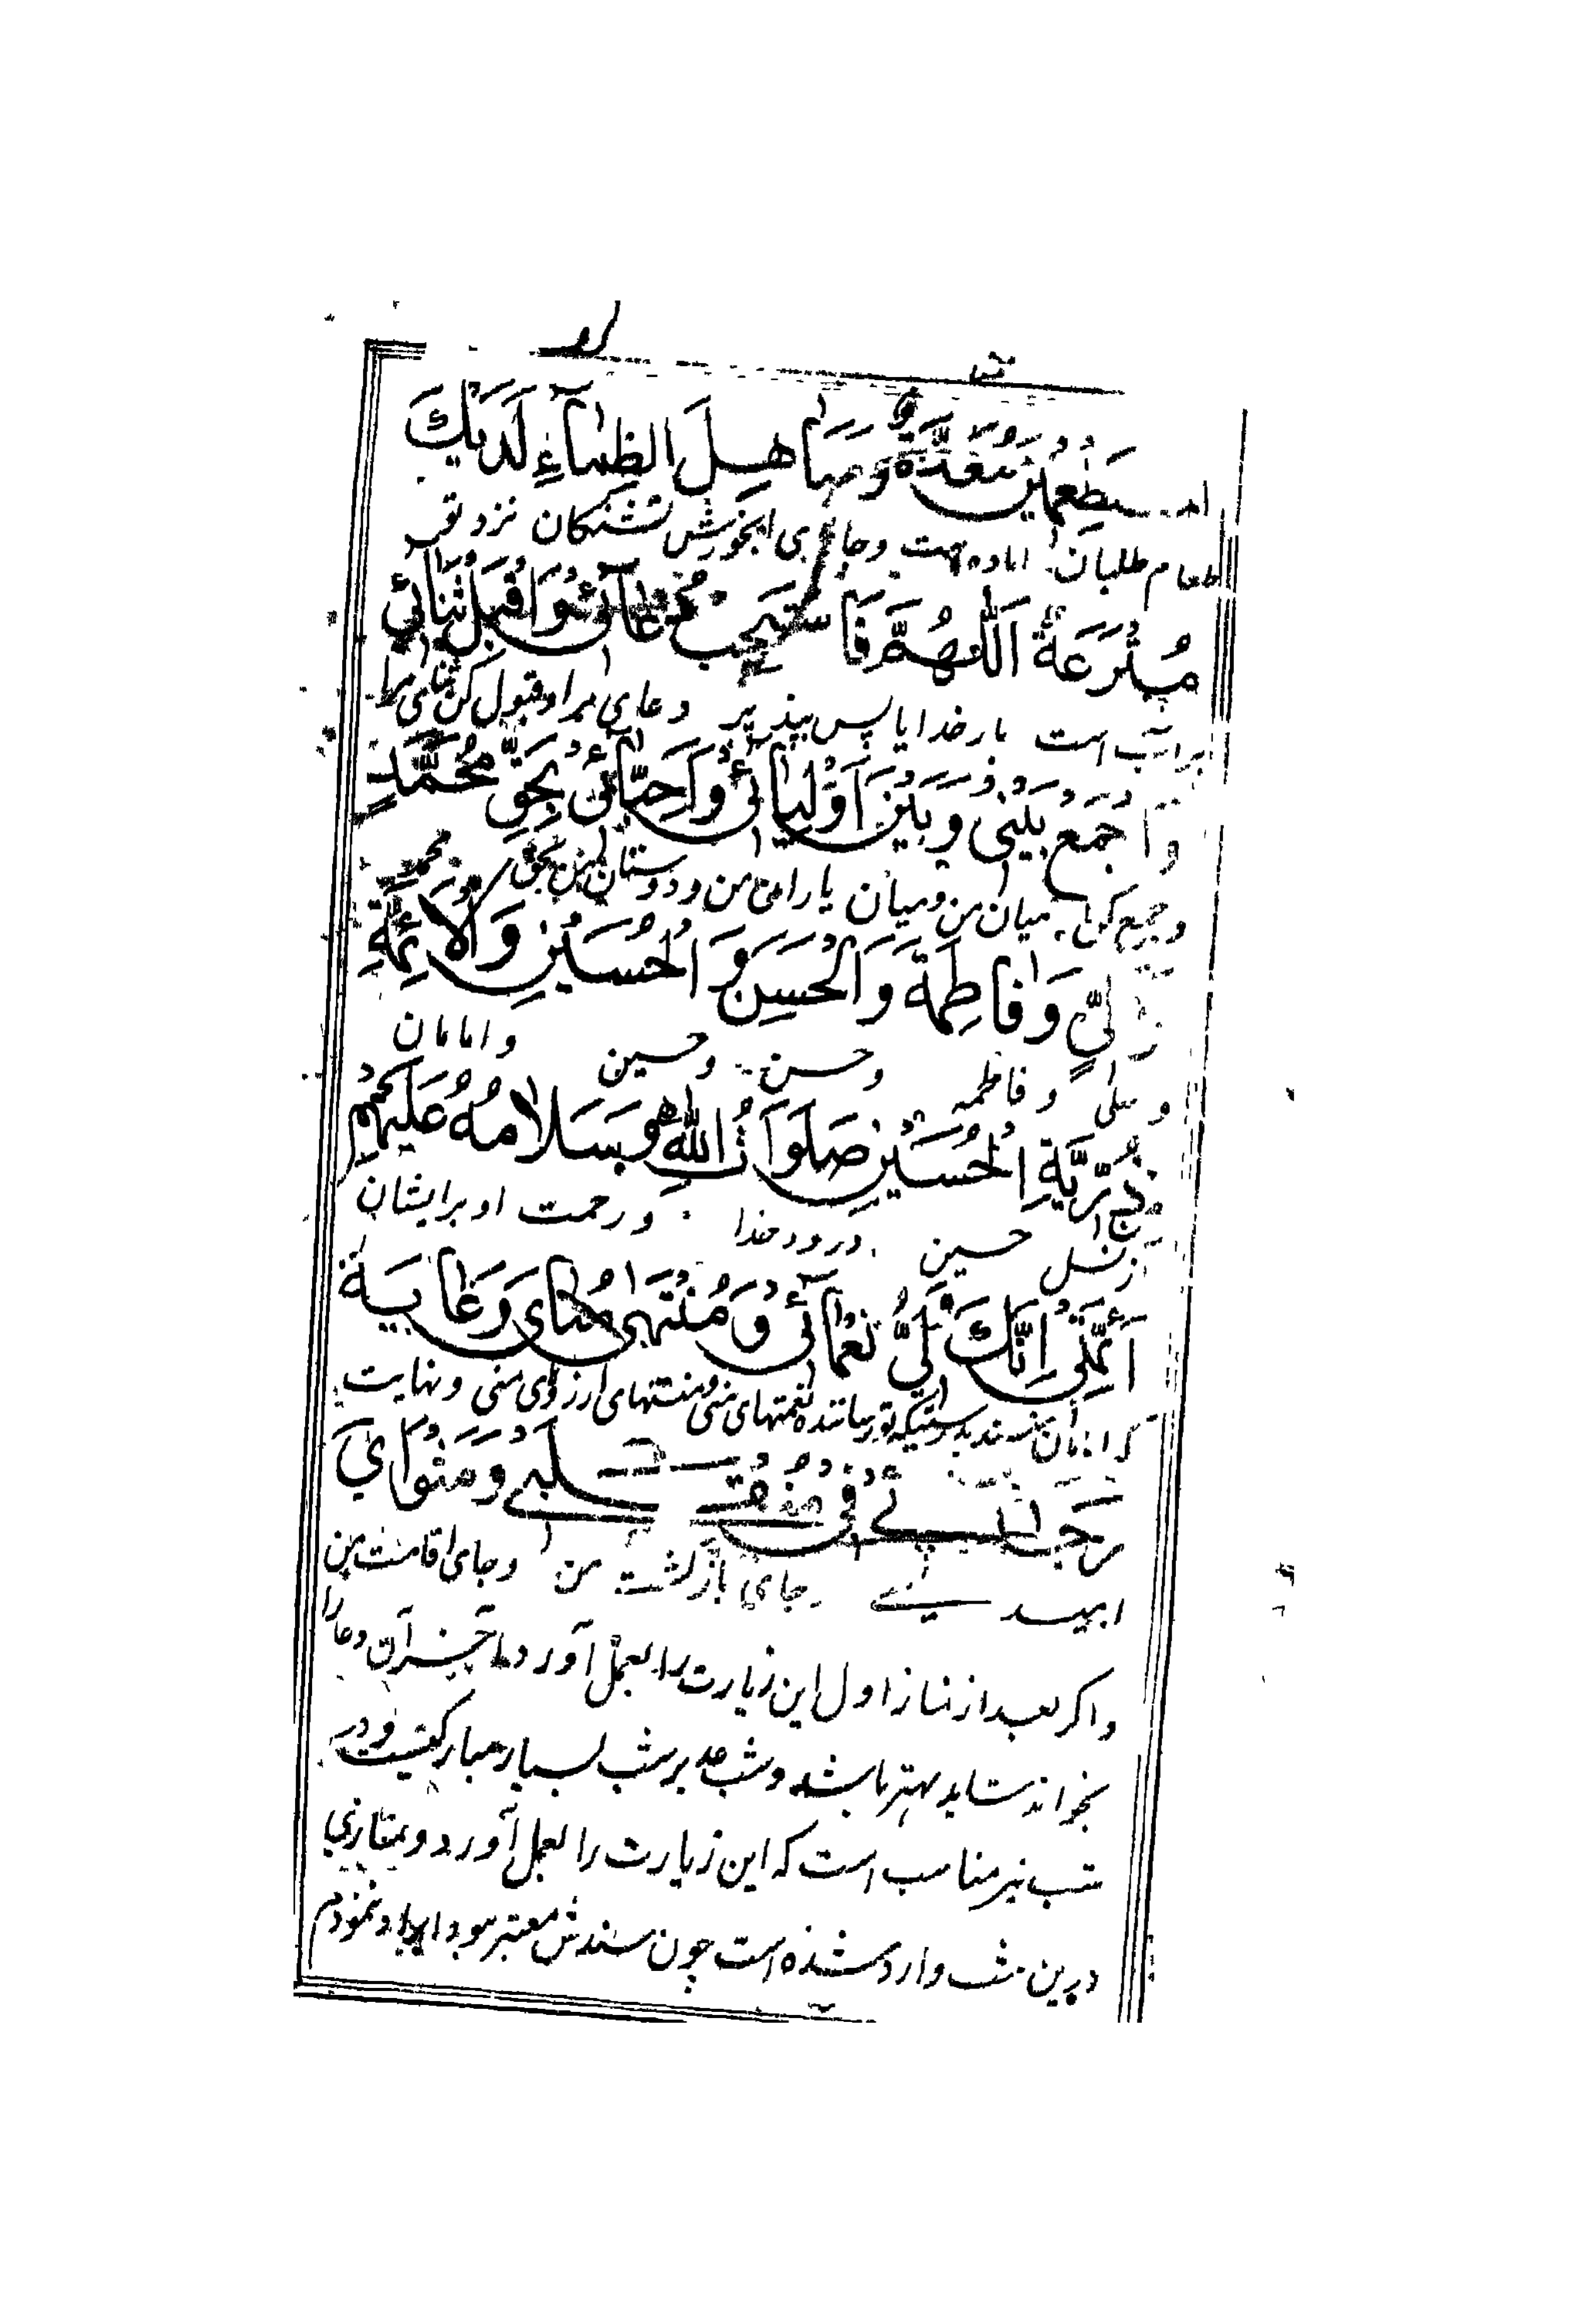 المستطعمین معدّة و مناهل الظماء لدیک
طعام طلبان اماده است وجاهای ابخورش تشنکان نزد تو
مترعة اللّهمّ فاستجب دعائی و اقبل ثنائی
پر آب است بار خدایا پس بپذیر دعای مرا و قبول کن ثنای مرا
و اجمع بینی و بین اولیائی و احبّائی بحقّ محمّدٍ
و جمع کن میان من و میان یاران من و دوستان من بحق محمد
و علیٍّ و فاطمة و الحسن و الحسین و الائمّة
و علی و فاطمه و حسن و حسین و امامان
من ذرّیّة الحسین صلوات الله و سلامه علیهم
از نسل حسین درود خدا و رحمت او بر ایشان
ائمّتی انّک ولیّ نعمائی و منتهی منای و غایة
که امامان منند بدرستیکه تو رساننده نعمتهای منی و منتهای ارزوی منی و نهایت
رجائی فی منقلبی و مثوای
امید منی جای بازکشت من و جای اقامت من
و اکر بعد از نماز اول این زیارت را بعمل آورد و آن دعا را
بخواند شاید بهتر باشد و شب غدیر شب بسیار مبارکیست و در
شب نیز مناسب است که این زیارت را بعمل آورد و نمازی
درین شب وارد شده است چون سندش معتبر نبود ایراد ننمودم